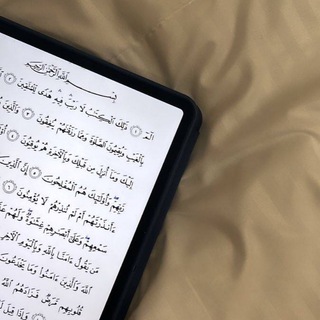 بِسْمِ ٱللَّهِ ٱلرَّحْمَٰنِ ٱلرَّحِيمِ
الٓمٓ ١ ذَٰلِكَ ٱلْكِتَٰبُ لَا رَيْبَ فِيهِ هُدًى لِّلْمُتَّقِينَ ٢
بِٱلْغَيْبِ وَيُقِيمُونَ ٱلصَّلَوٰةَ وَمِمَّا رَزَقْنَٰهُمْ يُنفِقُونَ ٣ وَٱلَّذِينَ
إِلَيْكَ وَمَآ أُنزِلَ مِن قَبْلِكَ وَبِٱلْءَاخِرَةِ هُمْ يُوقِنُونَ ٤
رَّبِّهِمْ وَأُو۟لَٰٓئِكَ هُمُ ٱلْمُفْلِحُونَ ٥ إِنَّ ٱلَّذِينَ
ءَأَنذَرْتَهُمْ أَمْ لَمْ تُنذِرْهُمْ لَا يُؤْمِنُونَ ٦
سَمْعِهِمْ وَعَلَىٰٓ أَبْصَٰرِهِمْ غِشَٰوَةٌ وَلَهُمْ
مَن يَقُولُ ءَامَنَّا بِٱللَّهِ وَبِٱلْيَوْمِ ٱلْءَاخِرِ
ٱللَّهَ وَٱلَّذِينَ ءَامَنُوا۟ وَمَا يَخْدَعُونَ
قُلُوبِهِم مَّرَضٌ فَزَادَهُمُ ٱللَّهُ
وَإِذَا قِيلَ